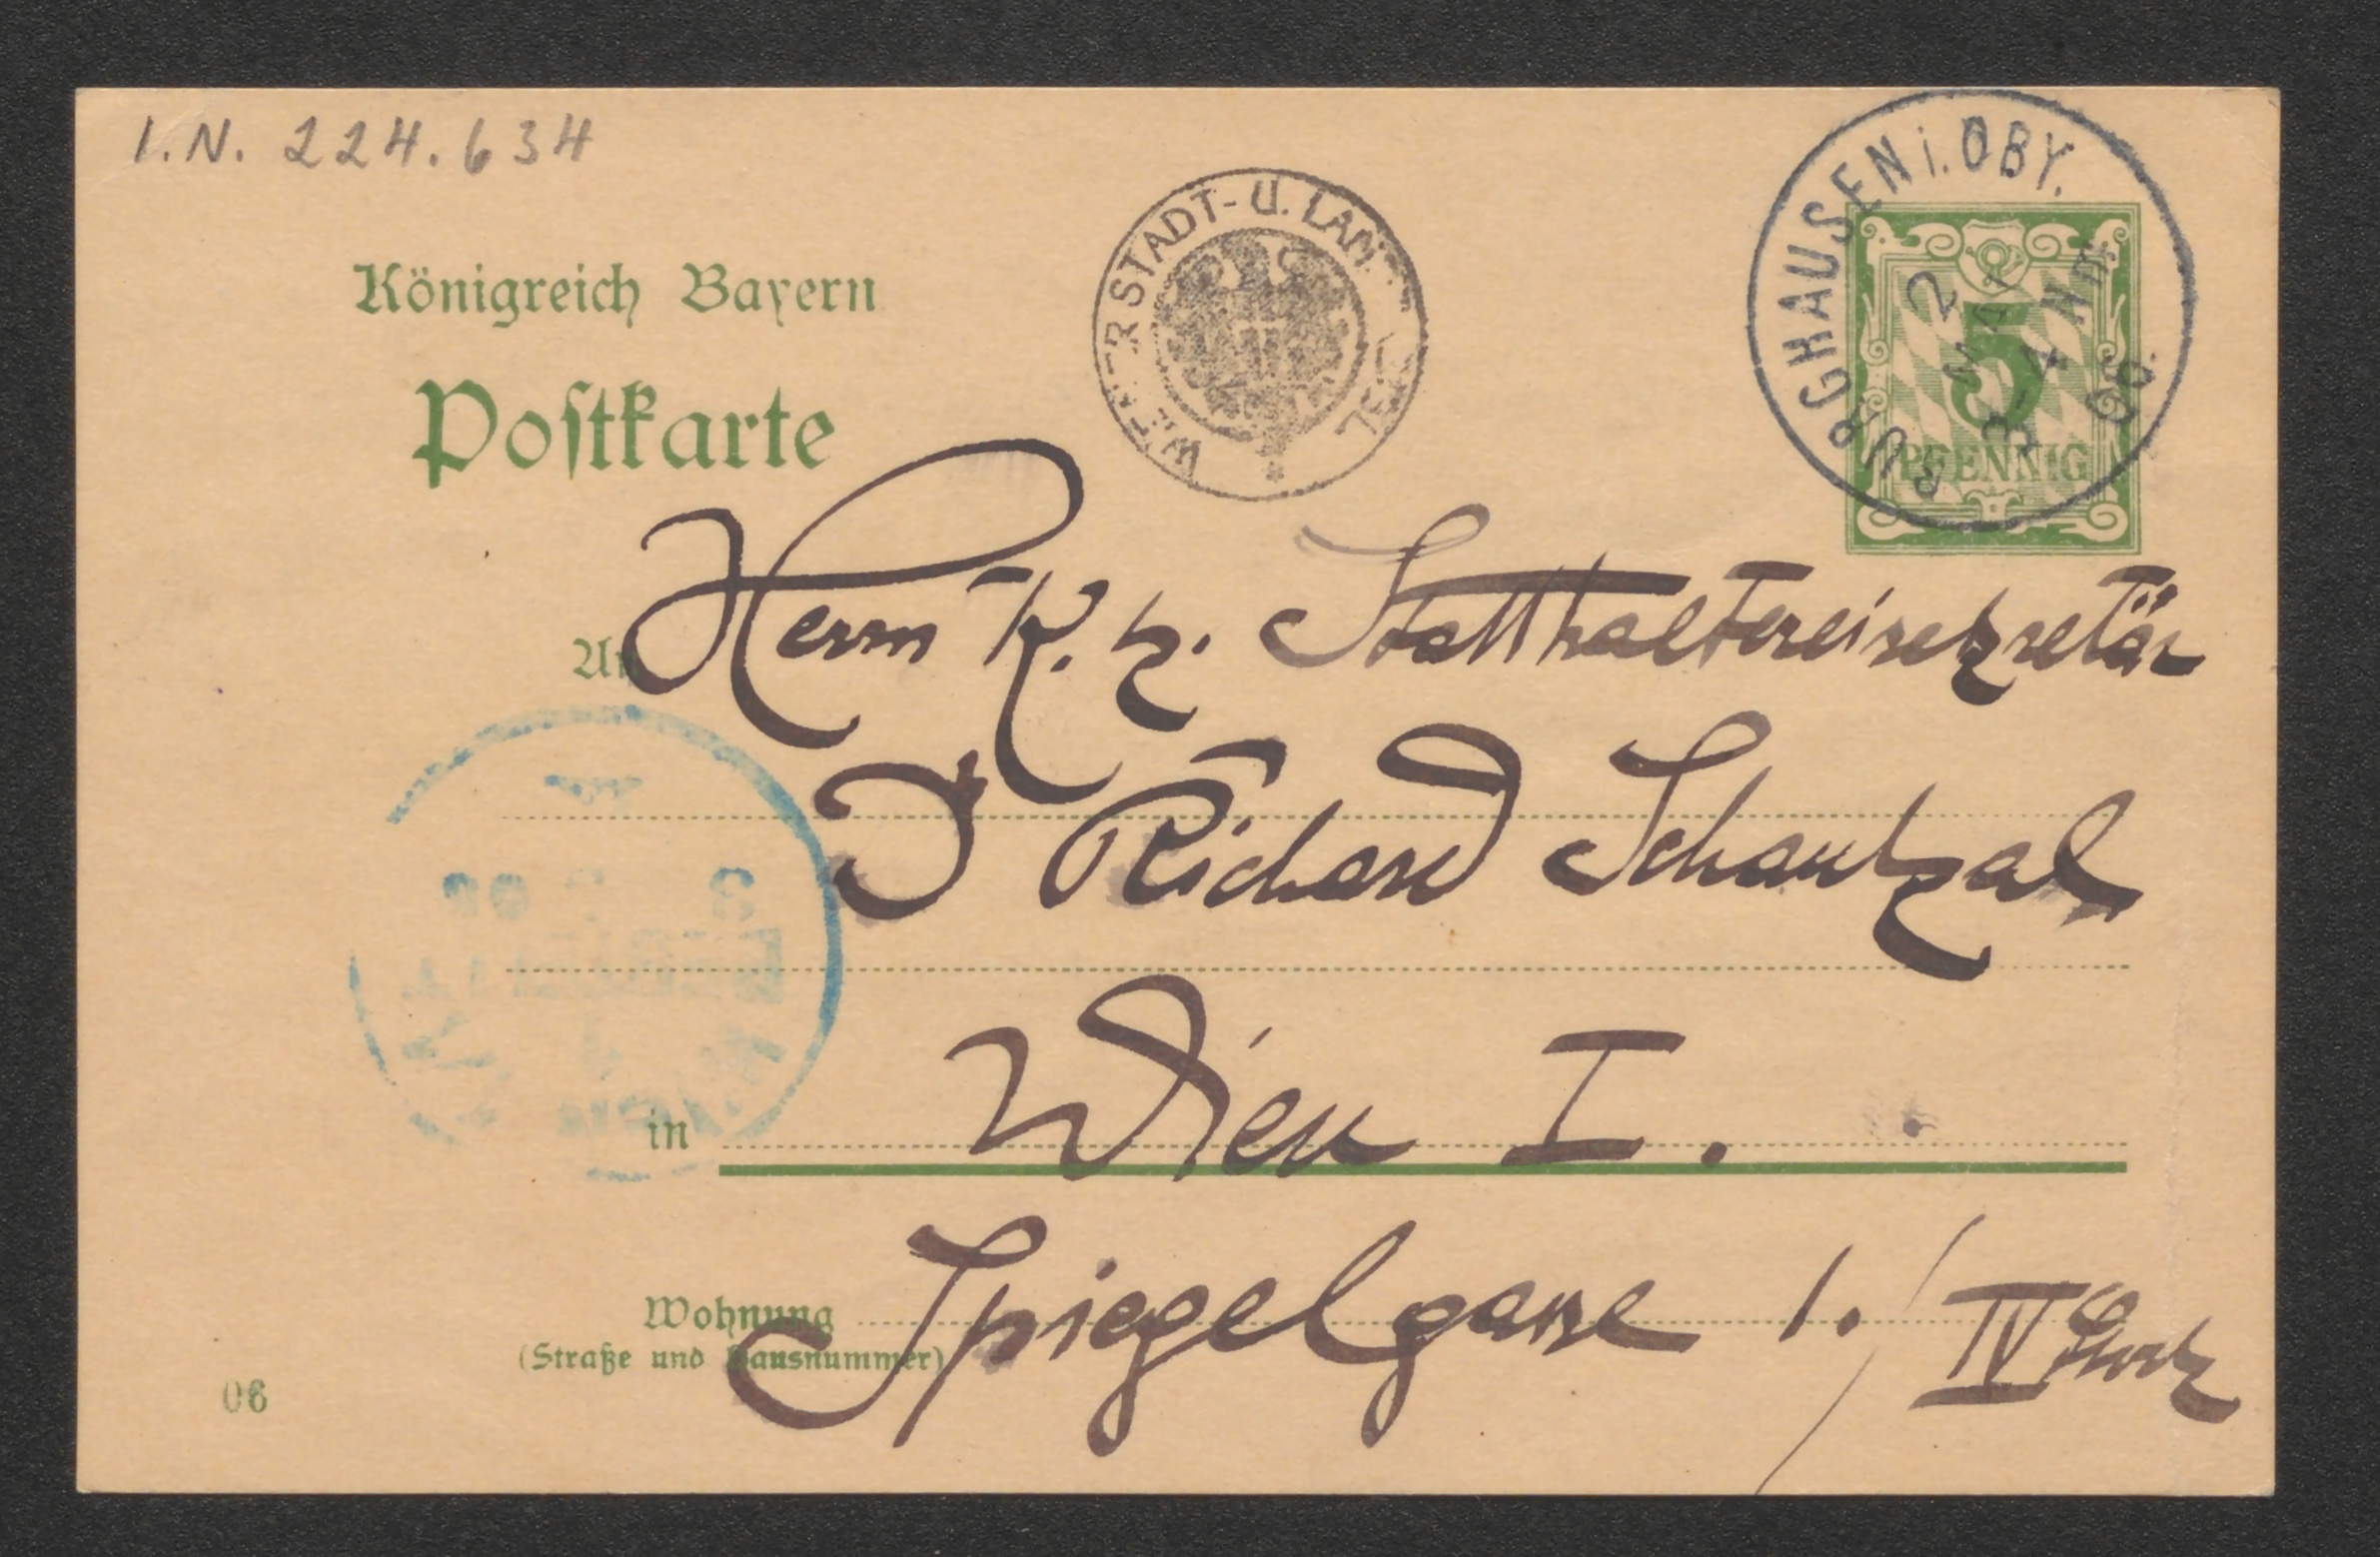 I.N. 224.634
Königreich Bayern
Postkarte
BURGHAUSEN i. OBY.
2 MAI
3-4 NM.
06.
5
PFENNIG
An Herrn K. k. Statthaltereisekretär
Dr Richard Schaukal
in Wien I.
Wohnung Spiegelgasse 1. / IV Stock
(Straße und Hausnummer)
06